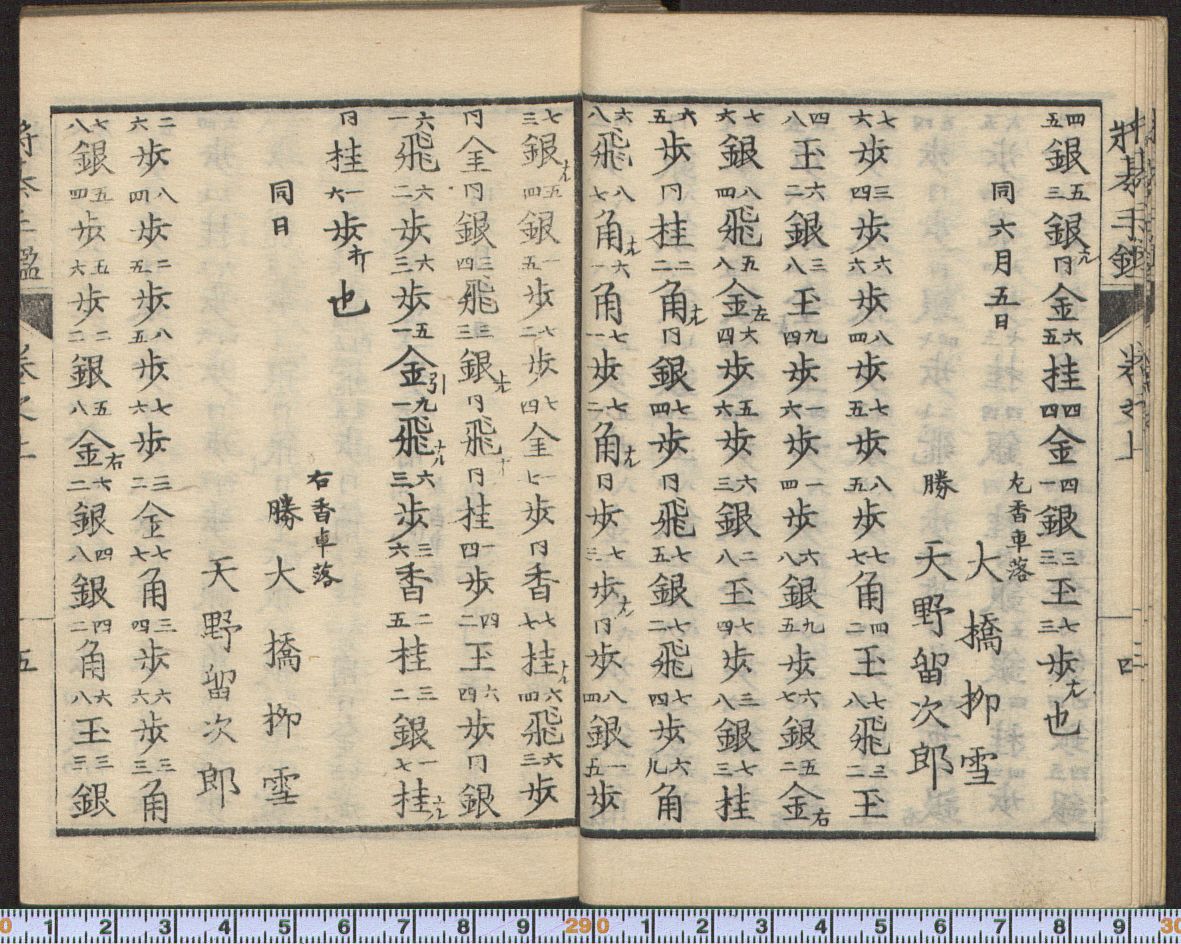 将棊手鑑 巻之上 四
四五銀 五三銀ナル 同金 六五桂 四四金 四一銀 三二玉 七三歩ナル也
同六月五日 左香車落
大橋柳雪
勝 天野留次郎
七六歩 三四歩 六六歩 八四歩 七五歩 八五歩 七七角 四二玉 七八飛 三二玉
四八玉 六二銀 三八玉 九四歩 一六歩 一四歩 六八銀 九五歩 六七銀 五二金右
七六銀 八四飛 五八金左 六四歩 五六歩 六三銀 二八玉 七四歩 三八銀 七三桂
六五歩 同桂 二二角ナル 同銀 七四歩 同飛 七五銀 七二飛 七四歩 六九角
六八飛 八七角ナル 六一角 七一歩 五二角ナル 同歩 七三歩ナル 同歩 八四銀 一五歩
七三銀ナル 五四銀 一五歩 七二歩 七四金 一七歩 同香 七七桂ナル 六四飛 六三歩
同金 同銀 三四飛 三三銀打 同飛ナル 同桂 一四歩 四二玉 六四歩 同銀
六一飛 六二歩 六三歩 五一金引 九一飛ナル 六三歩 三六香 二五桂 三二銀 一七桂ナル
同桂 一六歩打也
右香車落
同日 勝 大橋柳雪
天野留次郎
二六歩 八四歩 二五歩 八五歩 七六歩 三二金 七七角 三四歩 六六歩 三三角
七八銀 五四歩 五六歩 二二銀 五八金右 六二銀 四八銀 四二角 六八玉 三三銀
五